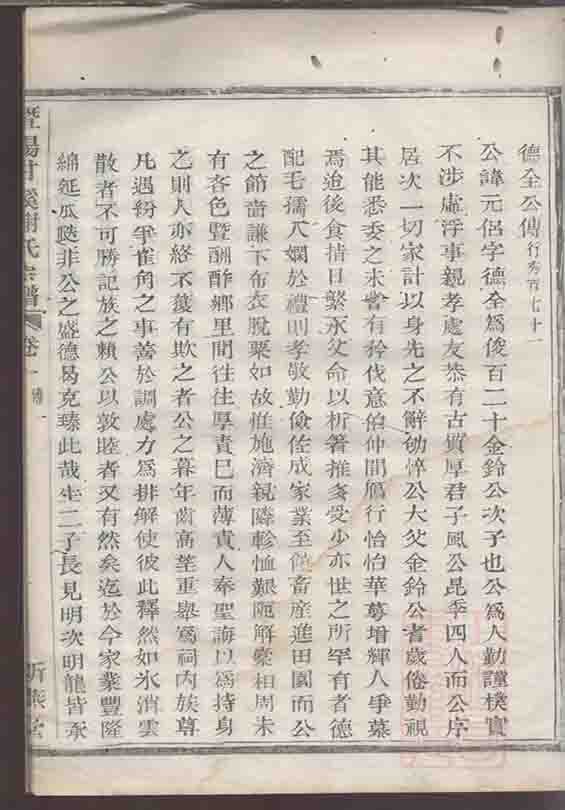 德全公傳行秀百七十一
公諱元侶字德全爲俊百二十金鈴公次子也公爲人勤謹樸實
不涉虛浮事親孝處友恭有古質厚君子風公昆季四人而公序
居次一切家計以身先之不辭劬悴公大父金鈴公耄歲倦勤視
其能悉委之未嘗有矜伐意伯仲間鴈行怡怡華萼增輝人爭慕
焉迨後食指日繁承父命以析箸推多受少亦世之所罕有者德
配毛孺人嫻於禮則孝敬勤儉佐成家業至饒畜産進田園而公
之節嗇謙下布衣脫粟如故惟施濟親隣軫恤艱阨解橐相周未
有吝色暨酬酢鄉里間往往厚責己而薄責人奉聖誨以爲持身
之則人亦終不薄有欺之者公之暮年齒高望重舉爲祠內族尊
凡遇紛爭雀角之事善於調處力爲排解使彼此釋然如氷消雲
散者不可勝記族之賴公以敦睦者又有然矣迄於今家業豐隆
綿延瓜瓞非公之盛德曷克臻此哉生二子長見明次明龍皆承
暨陽 溪謝氏宗譜 卷一